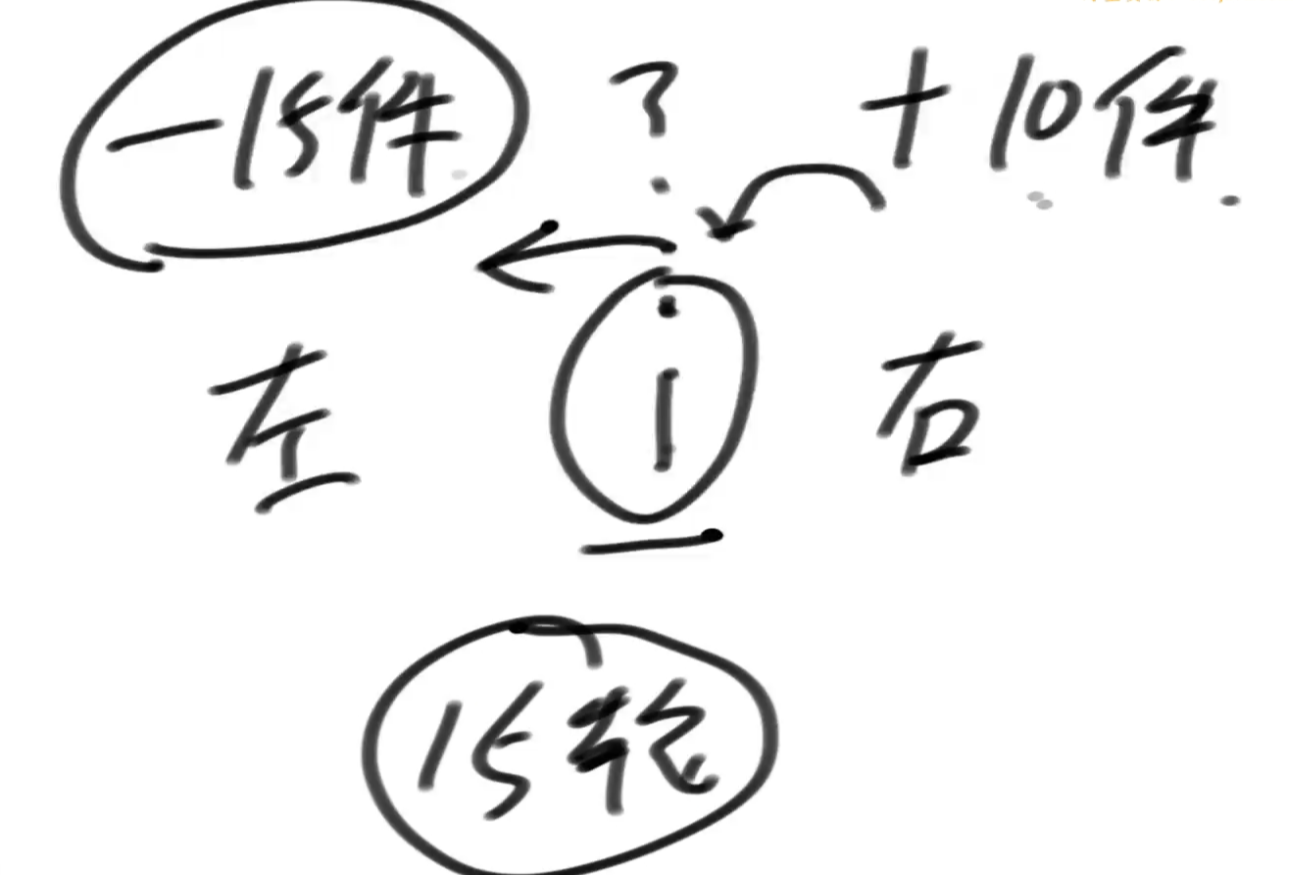 -15件 ? +10件.
左 i 右
15轮